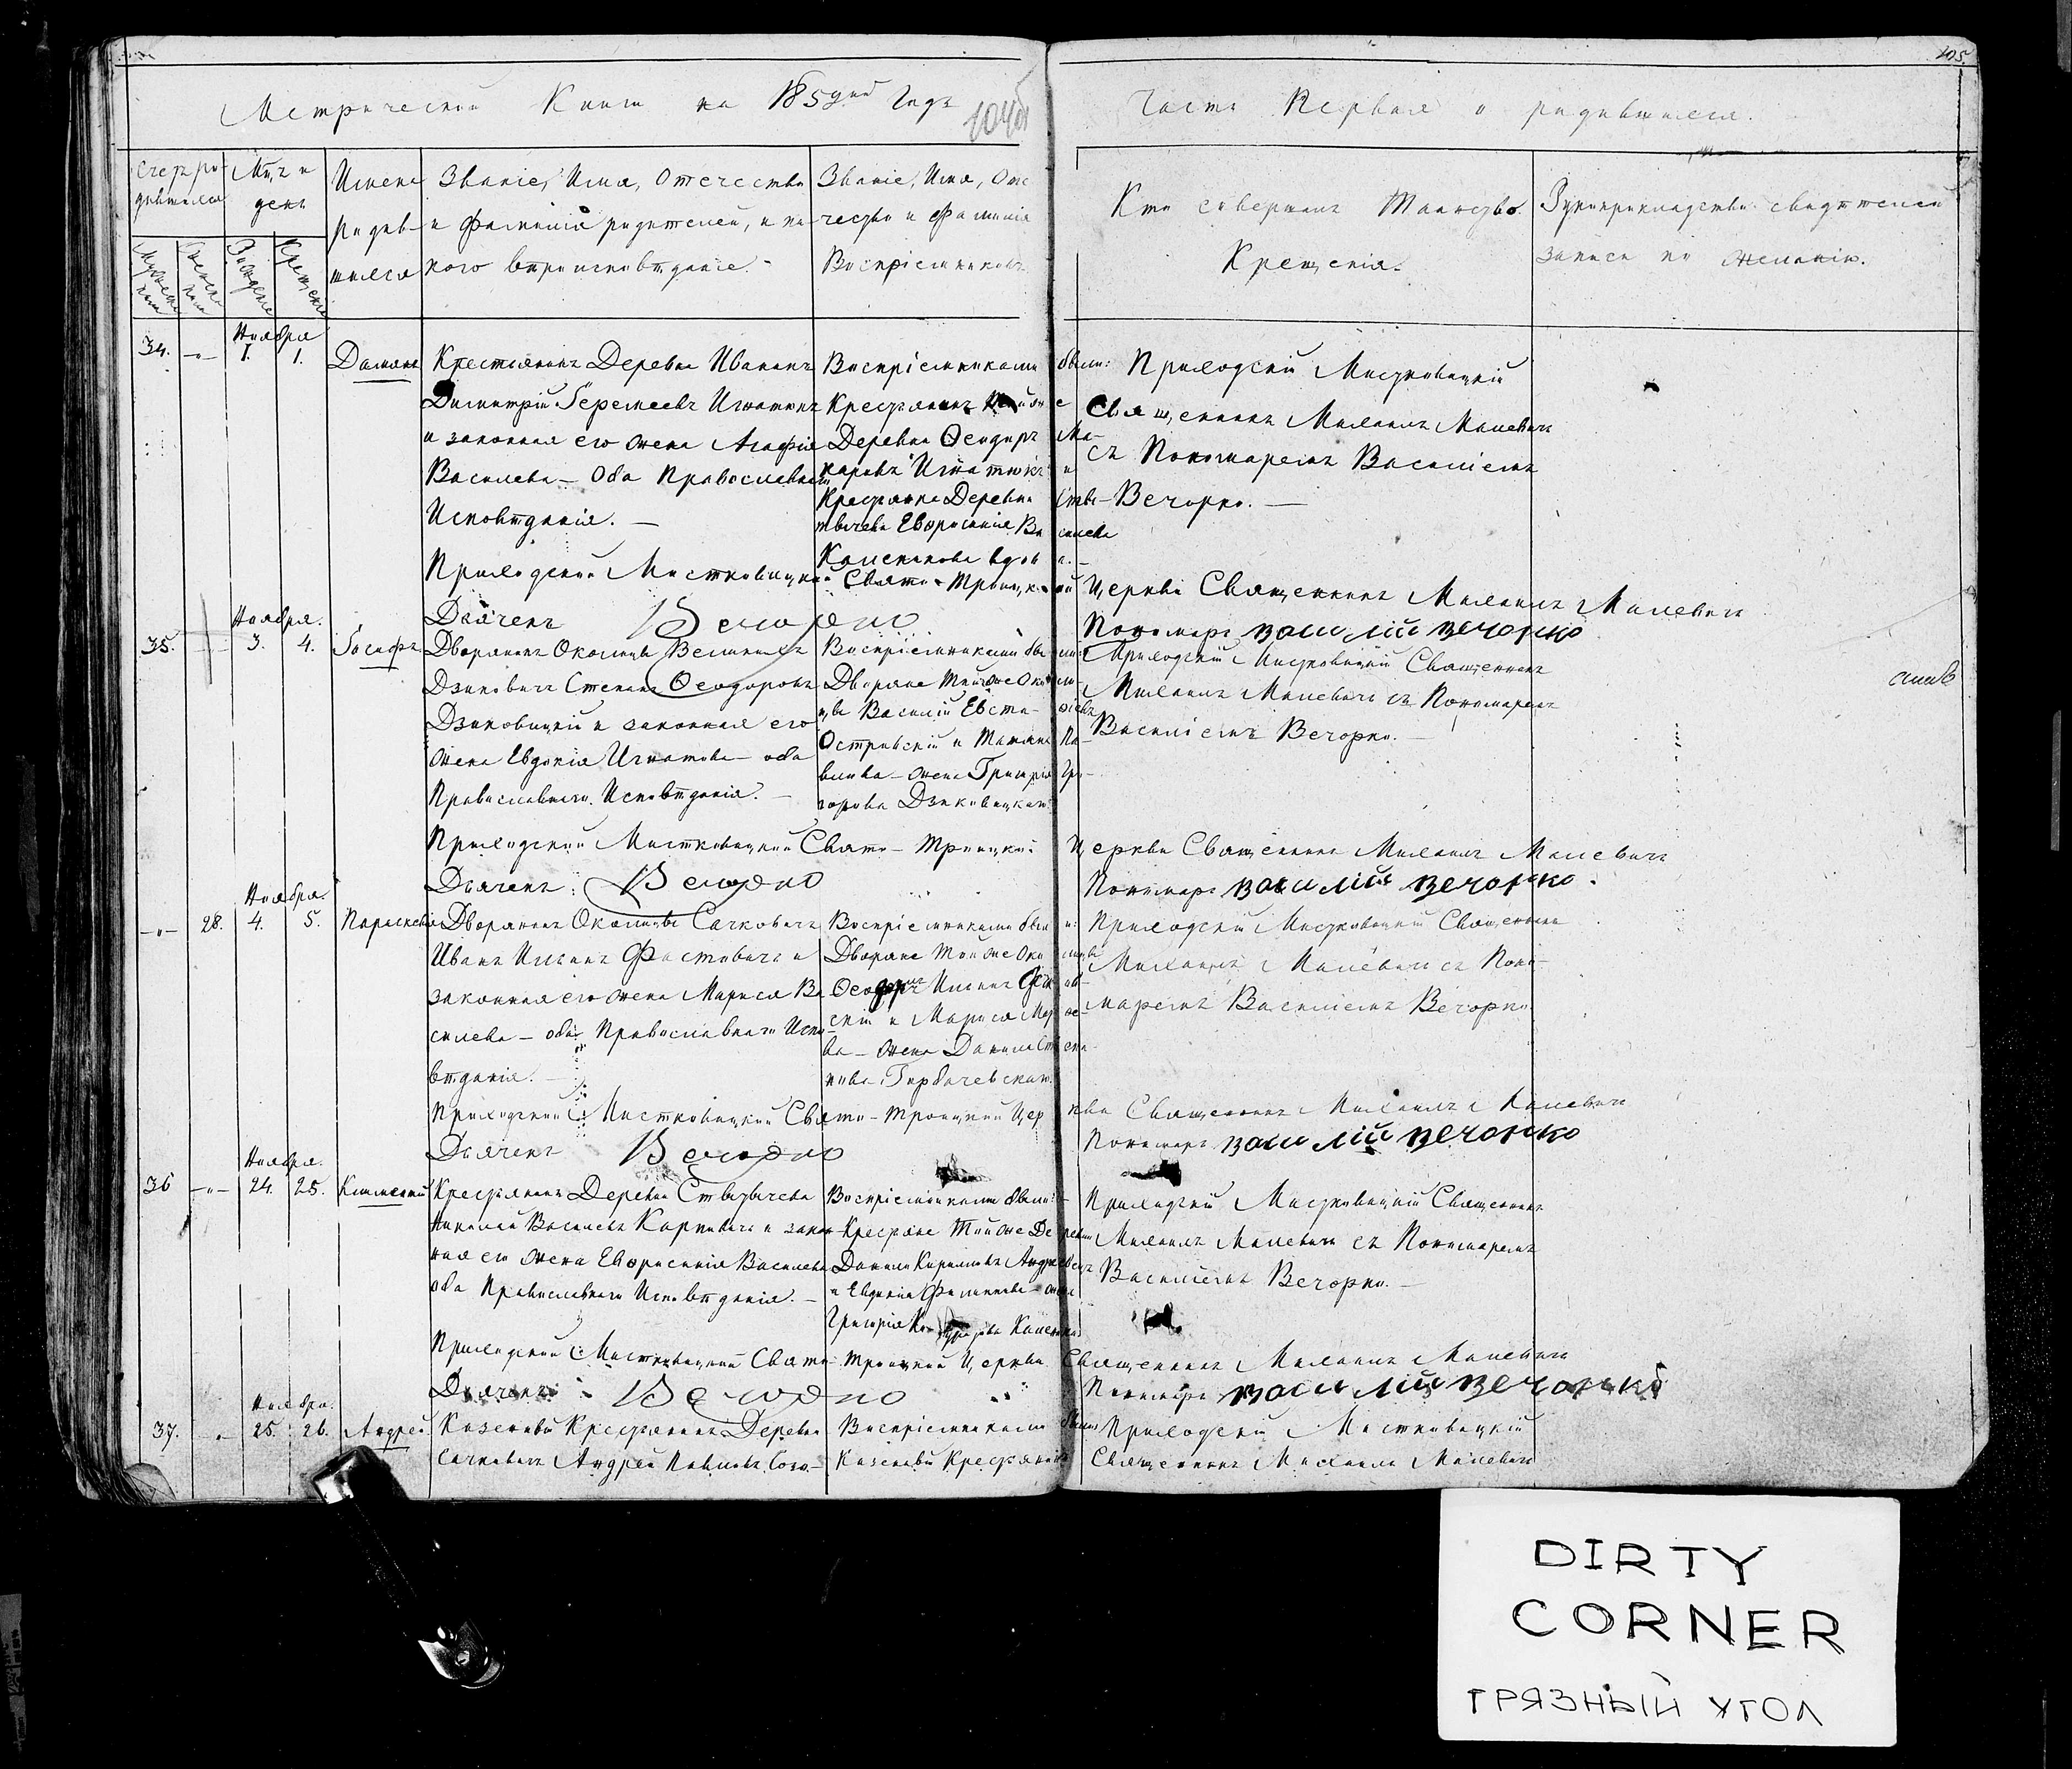 Метрической Книги на 185 Годъ
104об
Часть Первая о родившихся.
105.
Счетъ ро-
дившихся
Мужеска
Женска
Мѣс. и
день
Рожденія
Крещенія
Имена
родив-
шихся
Званіе, Имя, Отечество
и фамилія родителей, и ка-
кого вѣроисповѣданія.
Званіе, Имя, Оте
чество и фамилія
Воспріемниковъ
Кто совершалъ Таинство
Крещенія.
Рукоприкладство свидѣтелей
записи по желанію.
34. Ноября 1. 1.
Даміанъ
Крестьянинъ Деревни Иваникъ
Димитрій Іеремеевъ Игнатюкъ
и законная его жена Агафія
Василева — Оба Православнаго
Исповѣданія. —
Воспріемниками были:
Крестьянинъ той же
Деревни Ѳеодоръ Ма-
каровъ Игнатюкъ и
Крестьянка Деревни Ство-
тычева Евфросинія Ва силева
вдова. —
Приходскій Мистковицкій
Священникъ Михаилъ Малевичъ
съ Пономаремъ Василіемъ
Вечорко. —
Приходской Мистковицкой Свято-Троицкой Церкви Священникъ Михаилъ Малевичъ
Дьячекъ Пономарь василій вечорко
35. Ноября. 3. 4.
Іосифъ
Дворянинъ Околицы Великихъ
Дзиковичъ Степанъ Ѳеодоровъ
Дзиковицкій и законная его
жена Евдокія Игнатова — оба
Православнаго Исповѣданія. —
Воспріемниками были:
Дворяне той же Око ли-
цы Василій Евста фіевъ
Островскій и Татьяна Па-
влова — жена Григорія Гри-
горова Дзиковицкаго
Приходскій Мистковицкій Священникъ
Михаилъ Малевичъ съ Пономаремъ
Василіемъ Вечорко. —
Приходской Мистковицкой Свято-Троицкой Церкви Священникъ Михаилъ Малевичъ
Дьячекъ Пономарь василій вечорко.
28. Ноября. 4. 5.
Параскева
Дворянинъ Околицы Сачковичъ
Иванъ и
законная его жена Марися Ва
силева — оба Православнаго Испо-
вѣданія. —
Воспріемниками были:
Дворяне той же Око лицы
Ѳеодоръ
скій и Марися
ва — жена Данила Сте
нова Горбачевскаго.
Приходскій Мистковицкій Священникъ
Михаилъ Малевичъ съ Поно-
маремъ Василіемъ Вечорко
Приходской Мистковицкой Свято-Троицкой Церкви Священникъ Михаилъ Малевичъ
Дьячекъ Пономарь василій вечорко
36 Ноября. 24. 25.
Климентій
Крестьянинъ Деревни Ствтычева
Николай Василевъ Карповичъ и закон-
ная его жена Евфросинія Василева
оба Православнаго Исповѣданія. —
Воспріемниками были:
Крестьяне той же Де ревни
Данило Кириловъ
и Евдокія Филипова — жена
Григорія
Приходскій Мистковицкій Священникъ
Михаилъ Малевичъ съ Пономаремъ
Василіемъ Вечорко. —
Приходской Мистковицкой Свято-Троицкой Церкви Священникъ Михаилъ Малевичъ
Дьячекъ Пономарь василій вечорко
37. Ноября. 25. 26.
Андрей
Казенный Крестьянинъ Деревни
Сачковичъ Андрей Павловъ
Воспріемниками были
Казенный Крестьянинъ
Приходскій Мистковицкій
Священникъ Михаилъ Малевичъ
DIRTY
CORNER
ГРЯЗНЫЙ УГОЛ